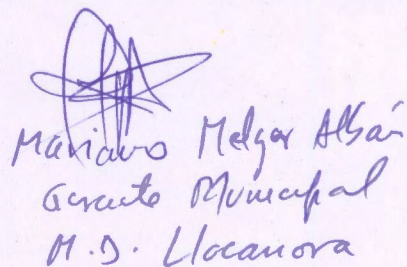 Mariano Melgar Albán
Gerente Municipal
M.D. Llacanora